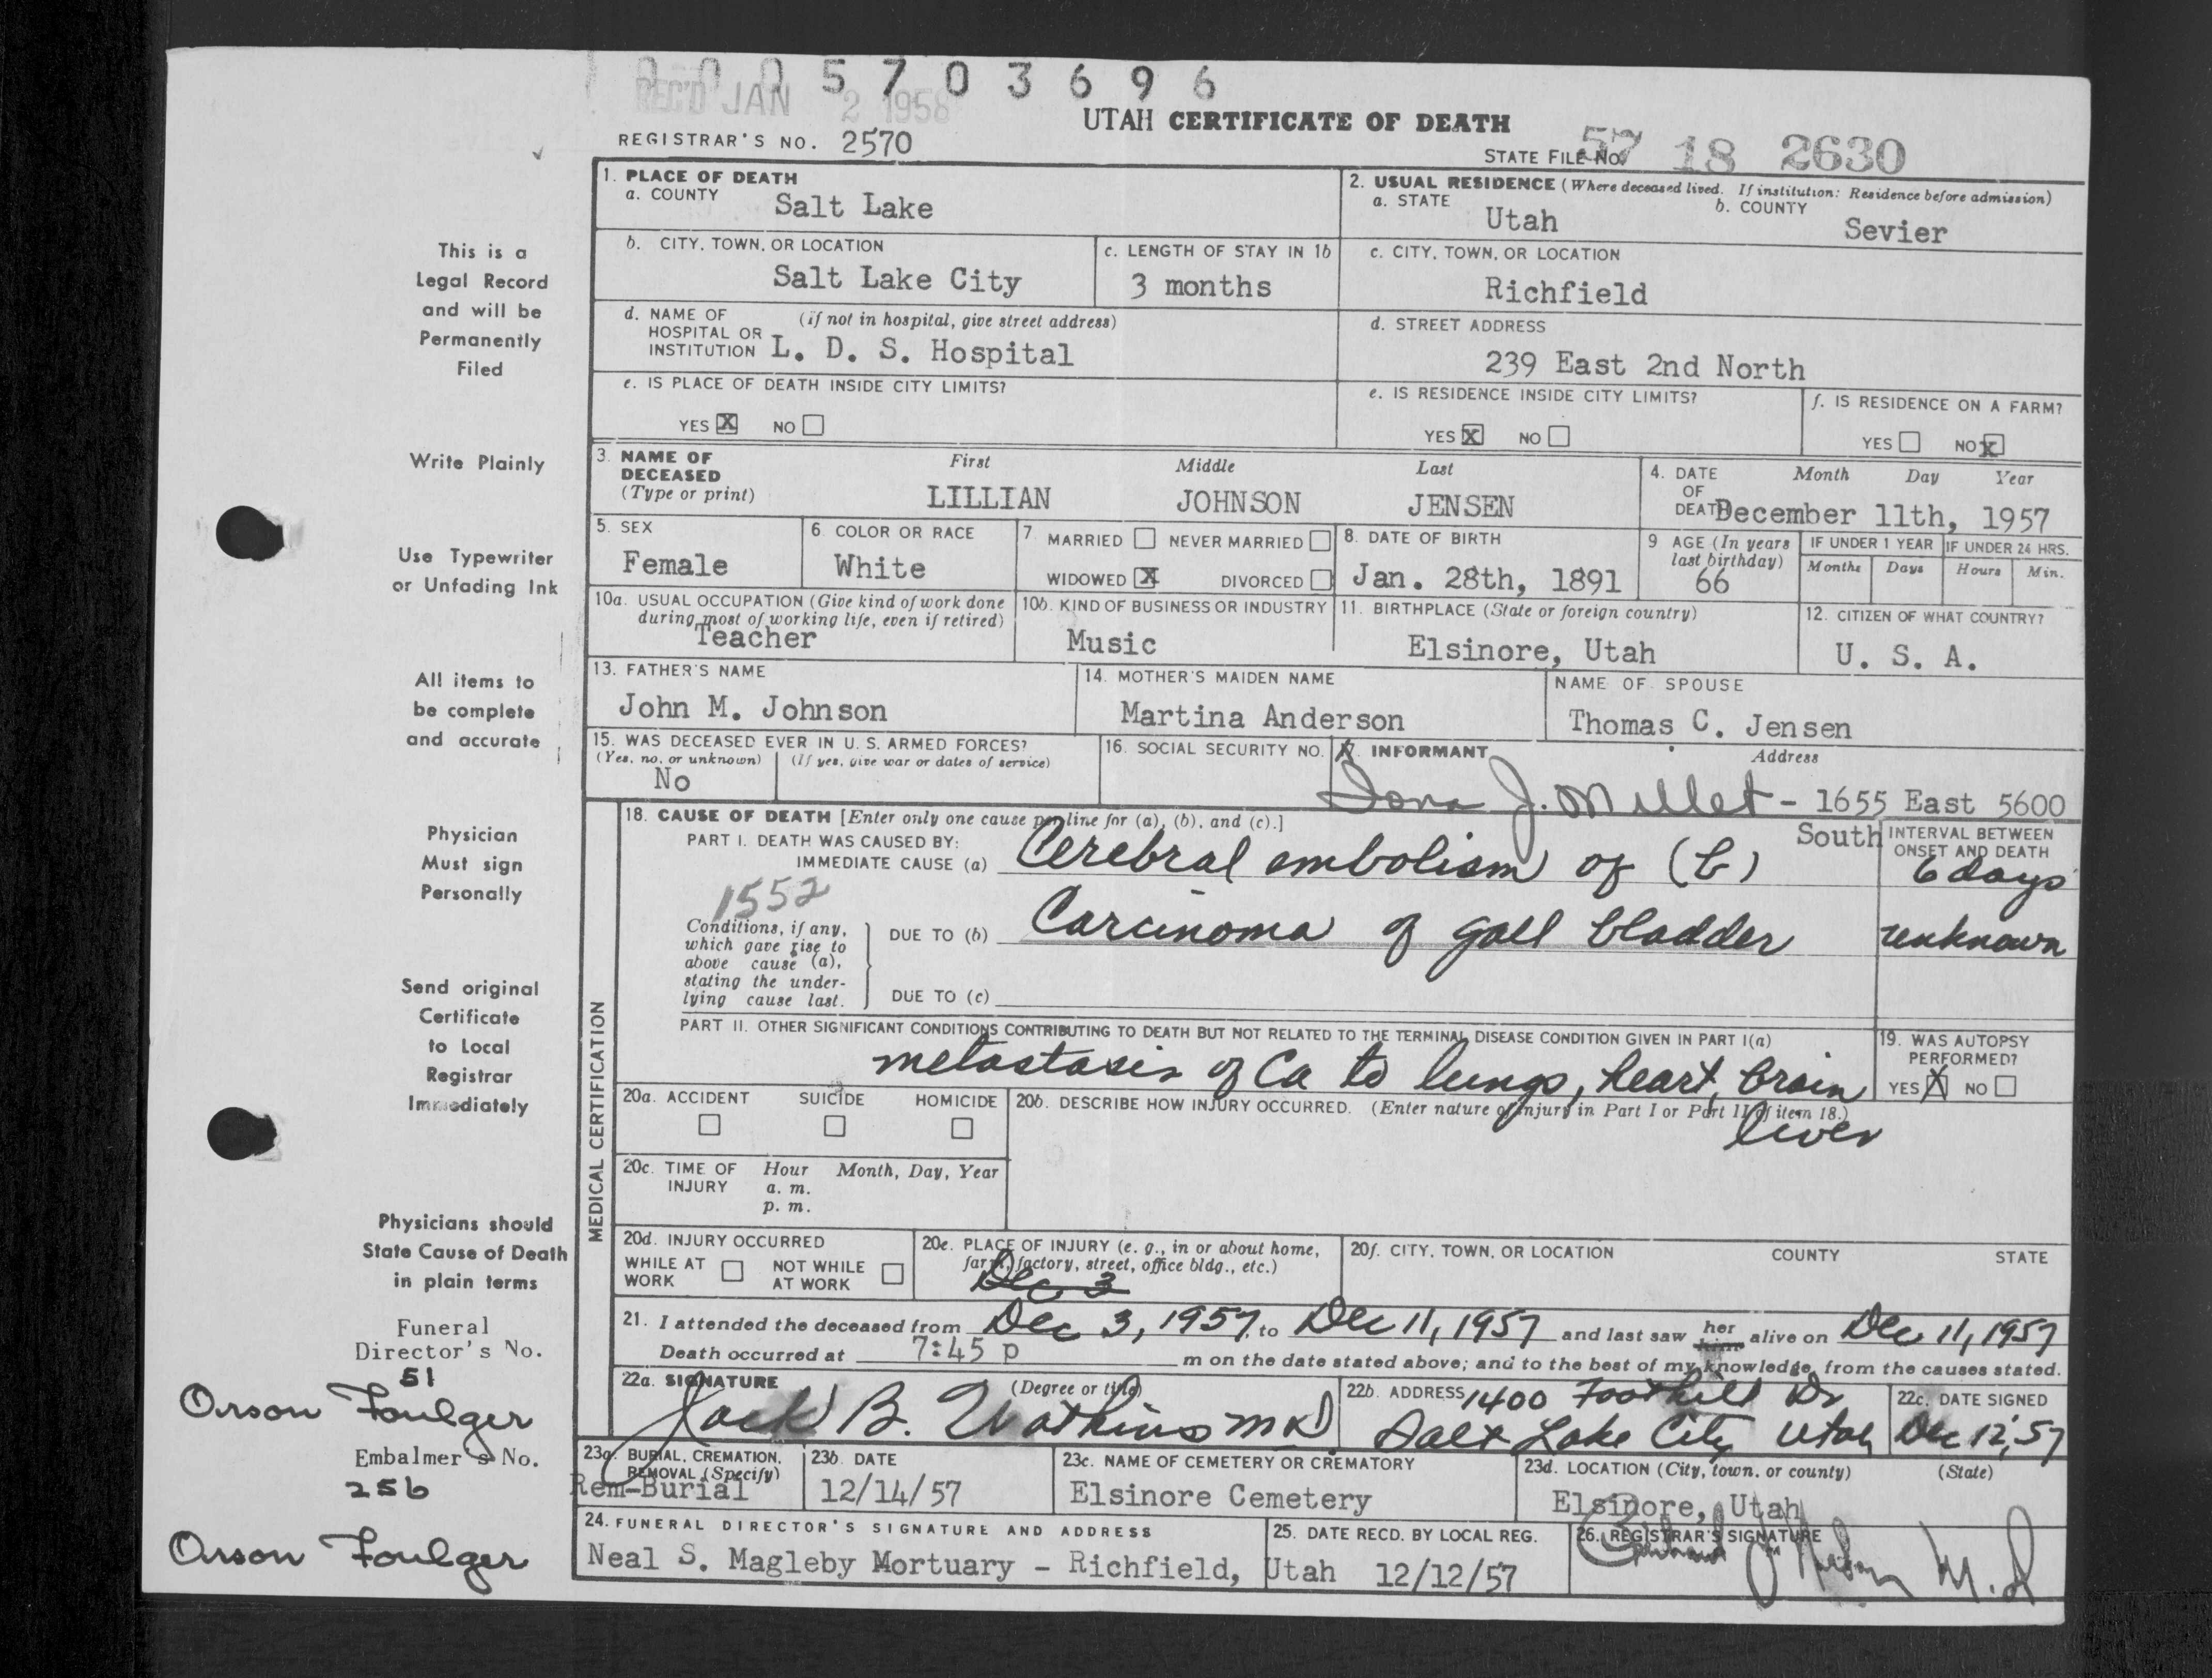 0005703696
REC'D JAN 2 1958
UTAH CERTIFICATE OF DEATH
REGISTRAR'S NO. 2570
STATE FILE NO. 57 18 2630
This is a
Legal Record
and will be
Permanently
Filed
Write Plainly
Use Typewriter
or Unfading Ink
All items to
be complete
and accurate
Physician
Must sign
Personally
Send original
Certificate
to Local
Registrar
Immediately
Physicians should
State Cause of Death
in plain terms
Funeral
Director's No.
51
Orson Foulger
Embalmer's No.
256
Orson Foulger
1. PLACE OF DEATH
a. COUNTY Salt Lake
2. USUAL RESIDENCE (Where deceased lived. If institution: Residence before admission)
a. STATE Utah b. COUNTY Sevier
b. CITY, TOWN, OR LOCATION Salt Lake City
c. LENGTH OF STAY IN 1b 3 months
c. CITY, TOWN, OR LOCATION Richfield
d. NAME OF HOSPITAL OR INSTITUTION (if not in hospital, give street address) L. D. S. Hospital
d. STREET ADDRESS 239 East 2nd North
e. IS PLACE OF DEATH INSIDE CITY LIMITS?
YES X NO
e. IS RESIDENCE INSIDE CITY LIMITS?
YES X NO
f. IS RESIDENCE ON A FARM?
YES NO X
3. NAME OF DECEASED (Type or print) First Middle Last
LILLIAN JOHNSON JENSEN
4. DATE OF DEATH Month Day Year
December 11th, 1957
5. SEX Female
6. COLOR OR RACE White
7 MARRIED NEVER MARRIED
WIDOWED X DIVORCED
8. DATE OF BIRTH Jan. 28th, 1891
9 AGE (In years last birthday) 66
IF UNDER 1 YEAR Months Days
IF UNDER 24 HRS. Hours Min.
10a. USUAL OCCUPATION (Give kind of work done during most of working life, even if retired) Teacher
10b. KIND OF BUSINESS OR INDUSTRY Music
11. BIRTHPLACE (State or foreign country) Elsinore, Utah
12. CITIZEN OF WHAT COUNTRY? U. S. A.
13. FATHER'S NAME John M. Johnson
14. MOTHER'S MAIDEN NAME Martina Anderson
NAME OF SPOUSE Thomas C. Jensen
15. WAS DECEASED EVER IN U. S. ARMED FORCES?
(Yes, no, or unknown) No (If yes, give war or dates of service)
16. SOCIAL SECURITY NO.
17. INFORMANT Address
Iona J. Millet - 1655 East 5600 South
MEDICAL CERTIFICATION
18. CAUSE OF DEATH [Enter only one cause per line for (a), (b), and (c).]
PART I. DEATH WAS CAUSED BY:
IMMEDIATE CAUSE (a) Cerebral embolism of (b)
INTERVAL BETWEEN ONSET AND DEATH
6 days
1552
Conditions, if any, which gave rise to above cause (a), stating the underlying cause last.
DUE TO (b) Carcinoma of gall bladder unknown
DUE TO (c)
PART II. OTHER SIGNIFICANT CONDITIONS CONTRIBUTING TO DEATH BUT NOT RELATED TO THE TERMINAL DISEASE CONDITION GIVEN IN PART I(a)
metastasis of Ca to lungs, heart, brain
liver
19. WAS AUTOPSY PERFORMED?
YES X NO
20a. ACCIDENT SUICIDE HOMICIDE
20b. DESCRIBE HOW INJURY OCCURRED. (Enter nature of injury in Part I or Part II of item 18.)
20c. TIME OF INJURY Hour Month, Day, Year
a. m.
p. m.
20d. INJURY OCCURRED
WHILE AT WORK NOT WHILE AT WORK
20e. PLACE OF INJURY (e. g., in or about home, farm, factory, street, office bldg., etc.)
Dec 3
20f. CITY, TOWN, OR LOCATION COUNTY STATE
21. I attended the deceased from Dec 3, 1957, to Dec 11, 1957 and last saw her him alive on Dec. 11, 1957
Death occurred at 7:45 p m on the date stated above; and to the best of my knowledge, from the causes stated.
22a. SIGNATURE (Degree or title)
Jack B. Watkins MD
22b. ADDRESS 1400 Foothill Dr
Salt Lake City Utah
22c. DATE SIGNED
Dec 12, 57
23a. BURIAL, CREMATION, REMOVAL (Specify) Rem-Burial
23b. DATE 12/14/57
23c. NAME OF CEMETERY OR CREMATORY Elsinore Cemetery
23d. LOCATION (City, town, or county) (State) Elsinore, Utah
24. FUNERAL DIRECTOR'S SIGNATURE AND ADDRESS
Neal S. Magleby Mortuary - Richfield, Utah
25. DATE RECD. BY LOCAL REG.
12/12/57
26. REGISTRAR'S SIGNATURE
M.D